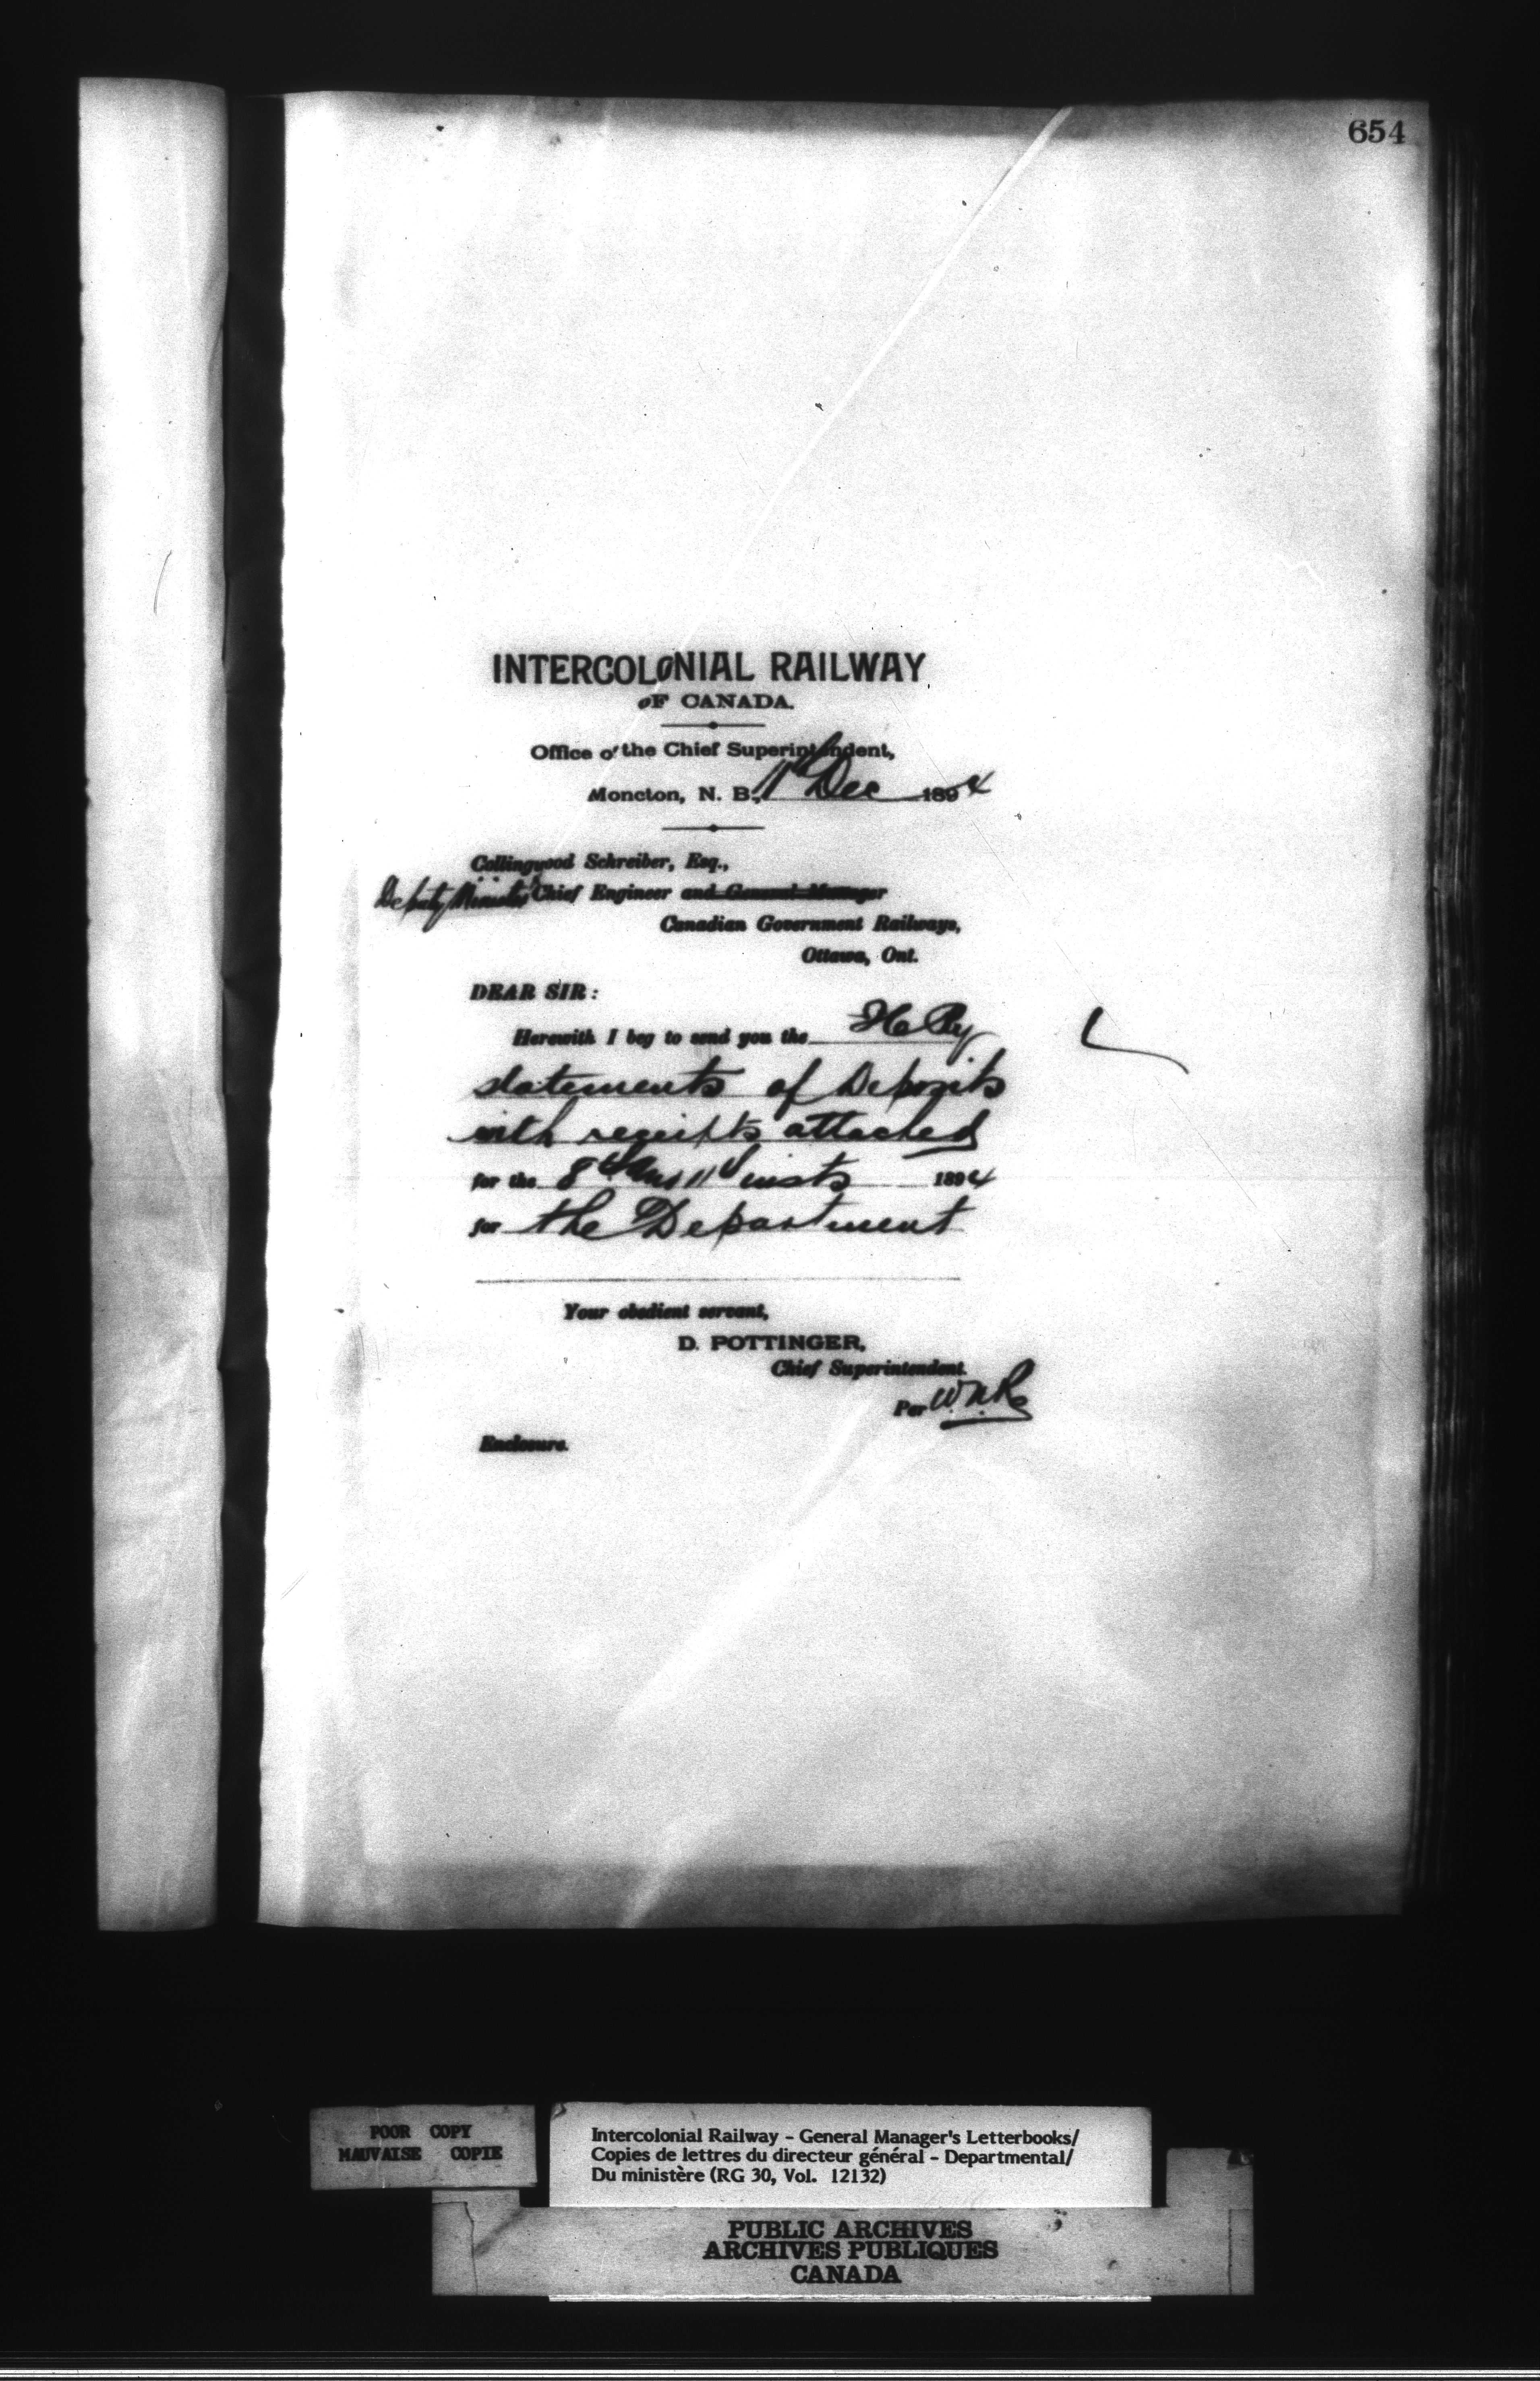 654
INTERCOLONIAL RAILWAY
OF CANADA.
Office of the Chief Superintendent,
Moncton, N. B., 11th Dec 1894
Collingwood Schreiber, Esq.,
Deputy Minister & Chief Engineer and General Manager
Canadian Government Railways,
Ottawa, Ont.
DEAR SIR:
Herewith I beg to send you the
statements of Deposits
with receipts attached
for the 8th and 11th insts 1894
for the Department
Your obedient servant,
D. POTTINGER,
Chief Superintendent.
Per W.N.R.
Enclosure.
POOR COPY
MAUVAISE COPIE
Intercolonial Railway - General Manager's Letterbooks/
Copies de lettres du directeur général - Departmental/
Du ministère (RG 30, Vol. 12132)
PUBLIC ARCHIVES
ARCHIVES PUBLIQUES
CANADA